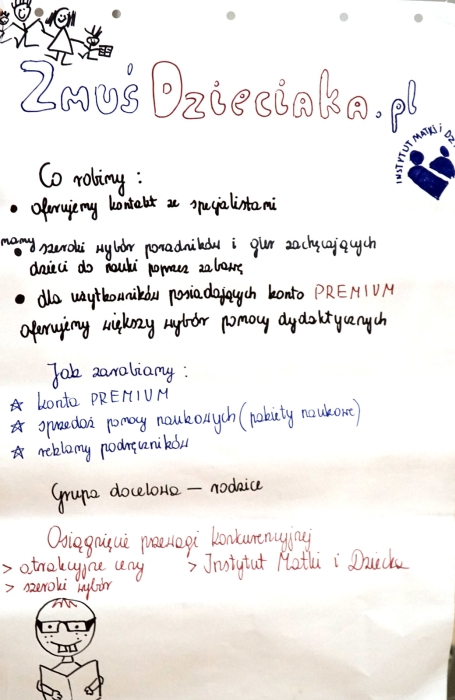 Zmuś Dzieciaka.pl
INSTYTUT MATKI i DZ
Co robimy:
• oferujemy kontakt ze specjalistami
mamy
• szeroki wybór poradników i gier zachęcających
dzieci do nauki poprzez zabawę
• dla użytkowników posiadających konto PREMIUM
oferujemy większy wybór pomocy dydaktycznych
Jak zarabiamy:
☆ konta PREMIUM
☆ sprzedaż pomocy naukowych (pakiety naukowe)
☆ reklamy podręczników
Grupa docelowa — rodzice
Osiągnięcie przewagi konkurencyjnej
> atrakcyjne ceny > Instytut Matki i Dziecka
> szeroki wybór